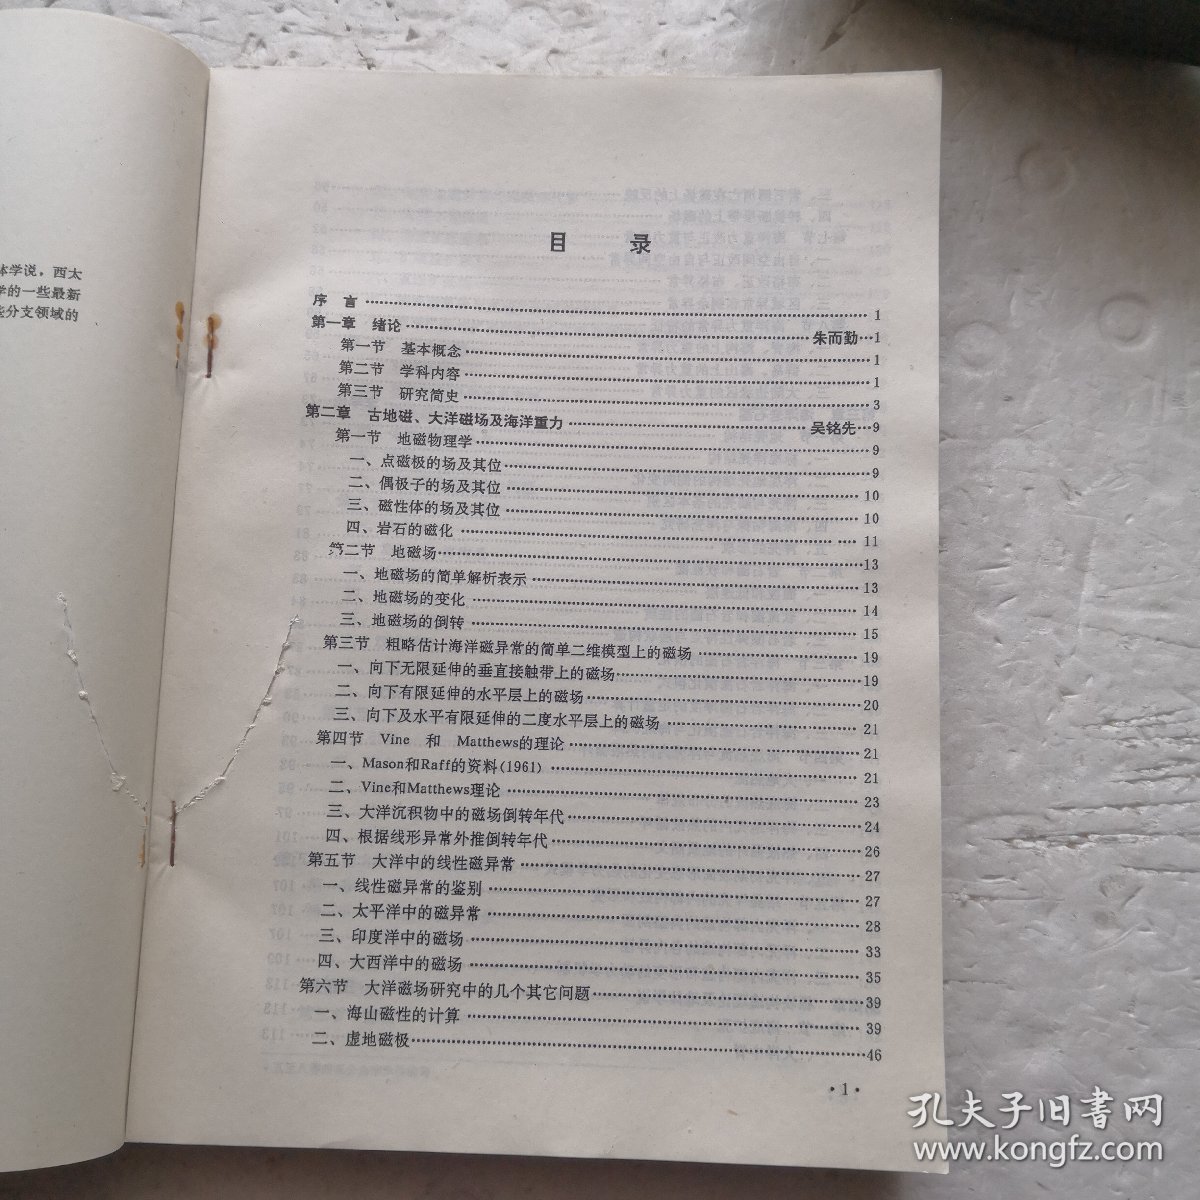 体学说，西太
学的一些最新
些分支领域的
目 录
序 言 1
第一章 绪论 朱而勤 1
第一节 基本概念 1
第二节 学科内容 1
第三节 研究简史 3
第二章 古地磁、大洋磁场及海洋重力 吴铭先 9
第一节 地磁物理学 9
一、点磁极的场及其位 9
二、偶极子的场及其位 10
三、磁性体的场及其位 10
四、岩石的磁化 11
第二节 地磁场 13
一、地磁场的简单解析表示 13
二、地磁场的变化 14
三、地磁场的倒转 15
第三节 粗略估计海洋磁异常的简单二维模型上的磁场 19
一、向下无限延伸的垂直接触带上的磁场 19
二、向下有限延伸的水平层上的磁场 20
三、向下及水平有限延伸的二度水平层上的磁场 21
第四节 Vine 和 Matthews的理论 21
一、Mason和Raff的资料(1961) 21
二、Vine和Matthews理论 23
三、大洋沉积物中的磁场倒转年代 24
四、根据线形异常外推倒转年代 26
第五节 大洋中的线性磁异常 27
一、线性磁异常的鉴别 27
二、太平洋中的磁异常 28
三、印度洋中的磁场 33
四、大西洋中的磁场 35
第六节 大洋磁场研究中的几个其它问题 39
一、海山磁性的计算 39
二、虚地磁极 46
·1·
孔夫子旧书网
www.kongfz.com